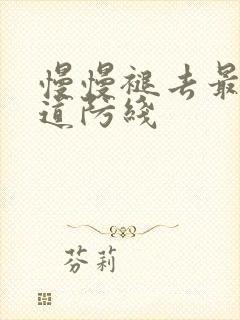 慢慢褪去最
道防线
芬莉